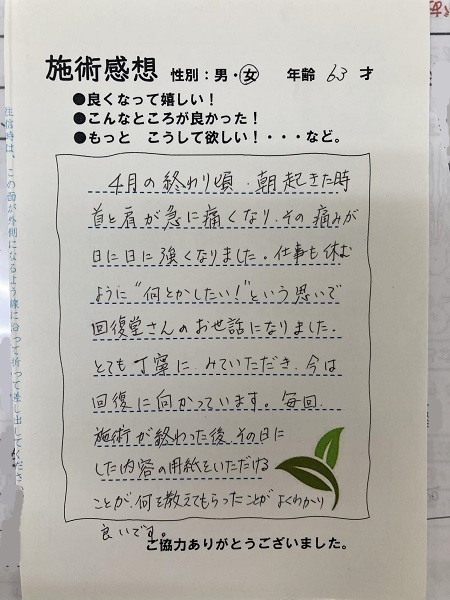 施術感想 性別:男・女 年齢 63 才
●良くなって嬉しい!
●こんなところが良かった!
●もっと こうして欲しい!・・・など。
4月の終わり頃、朝起きた時
首と肩が急に痛くなり、その痛みが
日に日に強くなりました。仕事も休む
ように“何とかしたい!”という思いで
回復堂さんのお世話になりました。
とても丁寧に みていただき、今は
回復に向かっています。毎回、
施術が終わった後、その日に
した内容の用紙をいただける
ことが、何を教えてもらったことが よくわかり
良いです。
ご協力ありがとうございました。
は、この面が外側になるよう線に沿って折って差し出してくださ